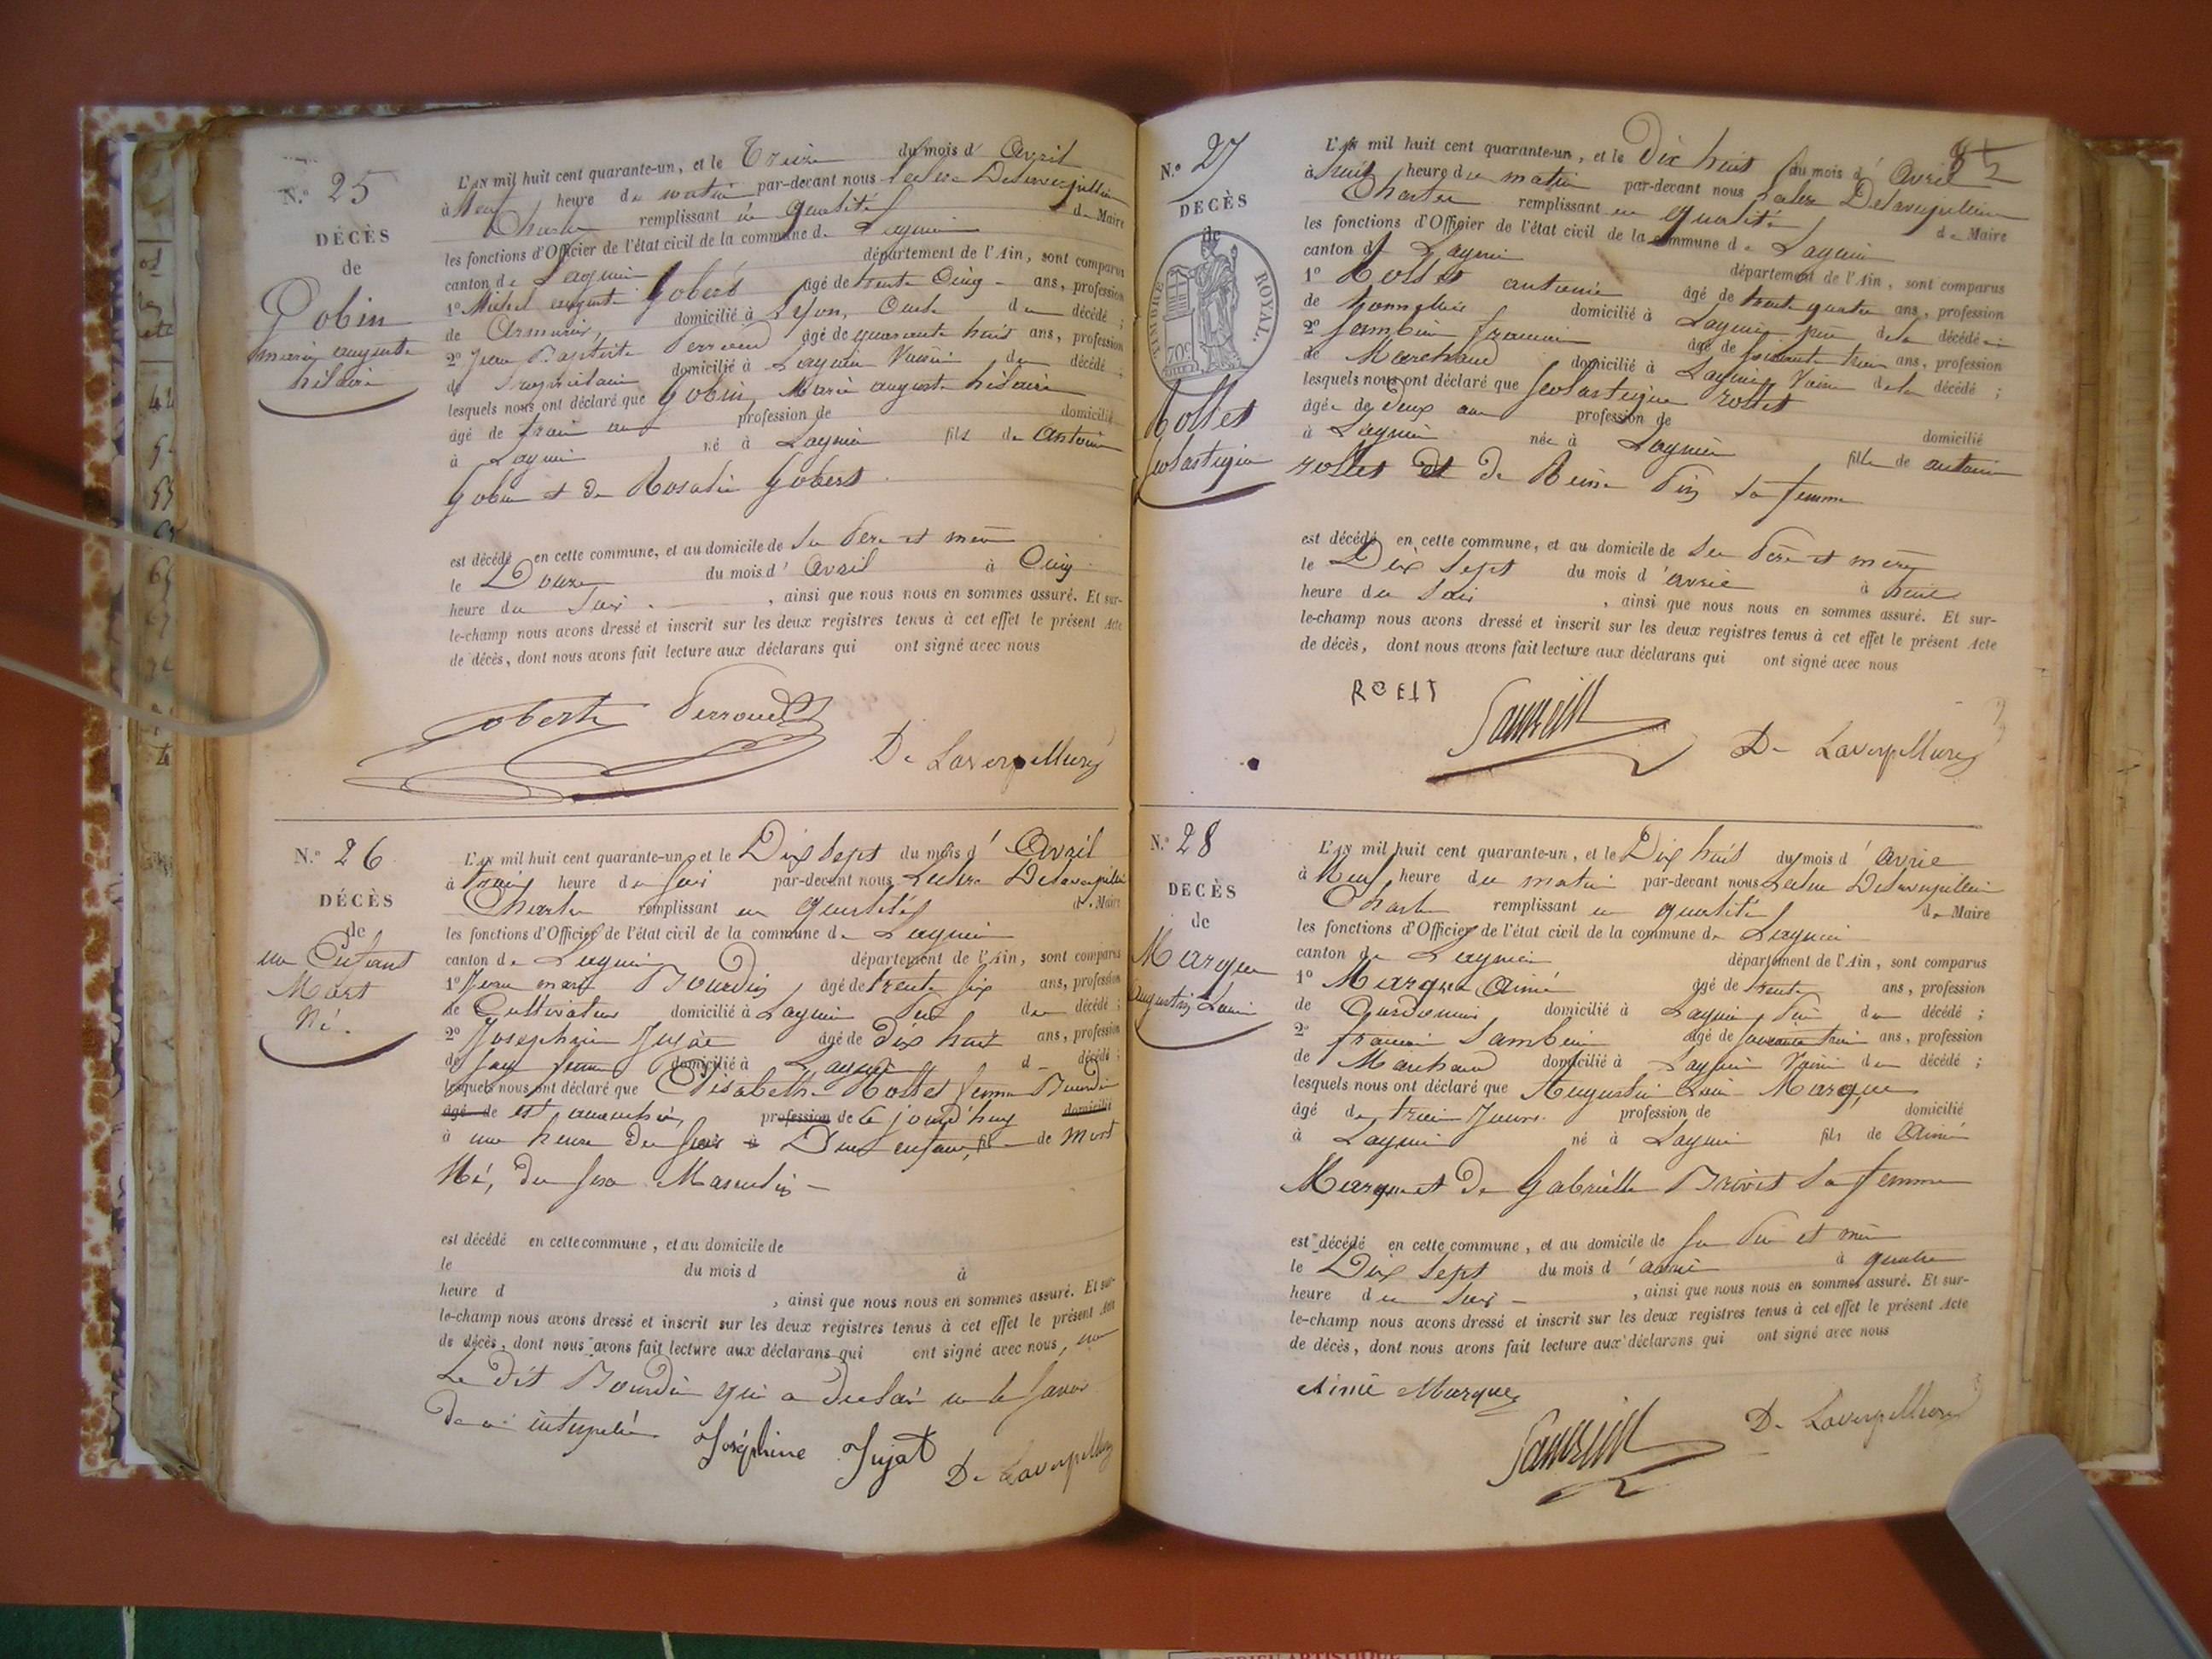 N.º 25
DÉCÈS
de
Gobin
marie auguste
hilaire
L'AN mil huit cent quarante-un, et le Treize du mois d' Avril
à Neuf heure du matin par-devant nous
Charles remplissant en qualité de Maire
les fonctions d'Officier de l'état civil de la commune de Lagnieu
canton de Lagnieu département de l'Ain, sont comparus
1º Michel auguste Gobert âgé de trente Cinq ans, profession
de Armurier, domicilié à Lyon, Oncle du décédé ;
2º Jean Baptiste Perroud âgé de quarante huit ans, profession
de Propriétaire domicilié à Lagnieu Voisin du décédé ;
lesquels nous ont déclaré que Gobin, Marie auguste hilaire
âgé de trois ans profession de domicilié
à Lagnieu né à Lagnieu fils de Antoine
Gobin et de Rosalie Gobert
est décédé en cette commune, et au domicile de Ses Père et mère
le Douze du mois d' Avril à Cinq
heure du Soir , ainsi que nous nous en sommes assuré. Et sur-
le-champ nous avons dressé et inscrit sur les deux registres tenus à cet effet le présent Acte
de décès, dont nous avons fait lecture aux déclarans qui ont signé avec nous
Goberte Perroud
De Laverpillière
N.º 26
DÉCÈS
de
un Enfant
Mort
Né.
L'AN mil huit cent quarante-un, et le Dix Sept du mois d' Avril
à trois heure du Soir par-devant nous
Charles remplissant en qualité de Maire
les fonctions d'Officier de l'état civil de la commune de Lagnieu
canton de Lagnieu département de l'Ain, sont comparus
1º Jean mary Bourdin âgé de trente Six ans, profession
de Cultivateur domicilié à Lagnieu Père du décédé ;
2º Josephine Jujat âgé de dix huit ans, profession
de Sage femme domicilié à Lagnieu d décédé ;
lesquels nous ont déclaré que Elisabeth Rollet femme Bourdin
âgé de est accouchée, profession de ce jourd'huy domicilié
à une heure du Soir à D'un enfant, fil de Mort
Né, du sexe Masculin
est décédé en cette commune, et au domicile de
le du mois d à
heure d , ainsi que nous nous en sommes assuré. Et sur-
le-champ nous avons dressé et inscrit sur les deux registres tenus à cet effet le présent Acte
de décès, dont nous avons fait lecture aux déclarans qui ont signé avec nous, non
Le dit Bourdin qui a déclaré ne le Savoir
De ce interpelé.
Joséphine Jujat De Laverpillière
N.º 27
DECÈS
de
TIMBRE ROYAL.
70c
Rollet
Scolastique
85
L'AN mil huit cent quarante-un, et le Dix huit du mois d' Avril
à huit heure du matin par-devant nous
Charles remplissant en qualité de Maire
les fonctions d'Officier de l'état civil de la commune de Lagnieu
canton de Lagnieu département de l'Ain, sont comparus
1º Rollet antoine âgé de trente quatre ans, profession
de domicilié à Lagnieu père de la décédée
2º Sambuin francois âgé de Soixante trois ans, profession
de Marchand domicilié à Lagnieu Voisin de la décédé ;
lesquels nous ont déclaré que Scolastique rollet
âgée de deux ans profession de domicilié
à Lagnieu née à Lagnieu fille de antoine
rollet et de Reine Pin Sa femme
est décédé en cette commune, et au domicile de Ses Père et mère
le Dix Sept du mois d' avril à neuf
heure du Soir , ainsi que nous nous en sommes assuré. Et sur-
le-champ nous avons dressé et inscrit sur les deux registres tenus à cet effet le présent Acte
de décès, dont nous avons fait lecture aux déclarans qui ont signé avec nous
De Laverpillière
N.º 28
DECÈS
de
Marque
augustin Louis
L'AN mil huit cent quarante-un, et le Dix huit du mois d' avril
à Neuf heure du matin par-devant nous
Charles remplissant en qualité de Maire
les fonctions d'Officier de l'état civil de la commune de Lagnieu
canton de Lagnieu département de l'Ain, sont comparus
1º Marque Aimé âgé de trente ans, profession
de Cordonnier domicilié à Lagnieu Père du décédé ;
2º francois Sambuin âgé de Soixante trois ans, profession
de Marchand domicilié à Lagnieu Voisin du décédé ;
lesquels nous ont déclaré que Augustin Louis Marque
âgé de trois Jours profession de domicilié
à Lagnieu né à Lagnieu fils de Aimé
Marque et de Gabrielle Brivet Sa femme
est décédé en cette commune, et au domicile de Ses Père et mère
le Dix Sept du mois d' avril à quatre
heure du Soir , ainsi que nous nous en sommes assuré. Et sur-
le-champ nous avons dressé et inscrit sur les deux registres tenus à cet effet le présent Acte
de décès, dont nous avons fait lecture aux déclarans qui ont signé avec nous
Aimé Marque
De Laverpillière